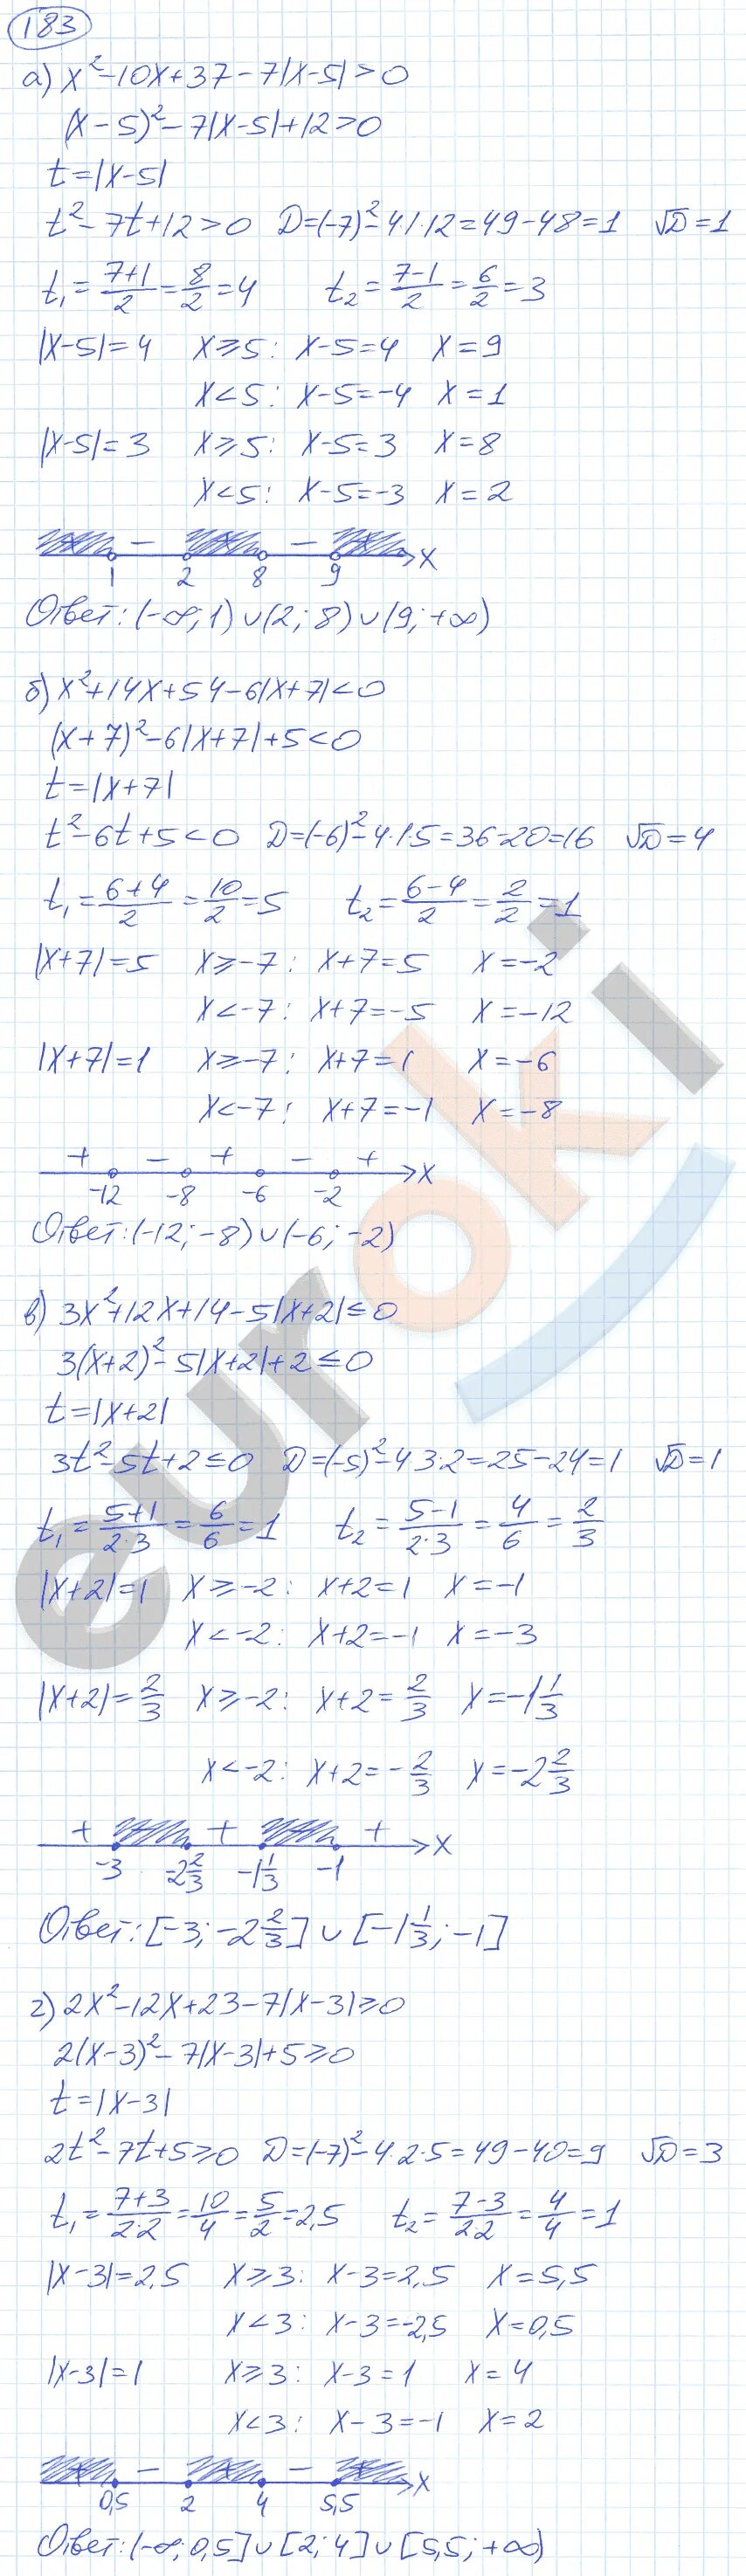 183
а) x²-10x+37-7|x-5|>0
(x-5)²-7|x-5|+12>0
t=|x-5|
t²-7t+12>0 D=(-7)²-4·1·12=49-48=1 √D=1
t₁=(7+1)/2=8/2=4 t₂=(7-1)/2=6/2=3
|x-5|=4 x≥5: x-5=4 x=9
x<5: x-5=-4 x=1
|x-5|=3 x≥5: x-5=3 x=8
x<5: x-5=-3 x=2
- - x
1 2 8 9
Ответ: (-∞; 1)∪(2; 8)∪(9; +∞)
б) x²+14x+54-6|x+7|<0
(x+7)²-6|x+7|+5<0
t=|x+7|
t²-6t+5<0 D=(-6)²-4·1·5=36-20=16 √D=4
t₁=(6+4)/2=10/2=5 t₂=(6-4)/2=2/2=1
|x+7|=5 x≥-7: x+7=5 x=-2
x<-7: x+7=-5 x=-12
|x+7|=1 x≥-7: x+7=1 x=-6
x<-7: x+7=-1 x=-8
+ - + - + x
-12 -8 -6 -2
Ответ: (-12; -8)∪(-6; -2)
в) 3x²+12x+14-5|x+2|≤0
3(x+2)²-5|x+2|+2≤0
t=|x+2|
3t²-5t+2≤0 D=(-5)²-4·3·2=25-24=1 √D=1
t₁=(5+1)/(2·3)=6/6=1 t₂=(5-1)/(2·3)=4/6=2/3
|x+2|=1 x≥-2: x+2=1 x=-1
x<-2: x+2=-1 x=-3
|x+2|=2/3 x≥-2: x+2=2/3 x=-1 1/3
x<-2: x+2=-2/3 x=-2 2/3
+ + + x
-3 -2 2/3 -1 1/3 -1
Ответ: [-3; -2 2/3]∪[-1 1/3; -1]
г) 2x²-12x+23-7|x-3|≥0
2(x-3)²-7|x-3|+5≥0
t=|x-3|
2t²-7t+5≥0 D=(-7)²-4·2·5=49-40=9 √D=3
t₁=(7+3)/(2·2)=10/4=5/2=2,5 t₂=(7-3)/(2·2)=4/4=1
|x-3|=2,5 x≥3: x-3=2,5 x=5,5
x<3: x-3=-2,5 x=0,5
|x-3|=1 x≥3: x-3=1 x=4
x<3: x-3=-1 x=2
- - x
0,5 2 4 5,5
Ответ: (-∞; 0,5]∪[2; 4]∪[5,5; +∞)
euroki